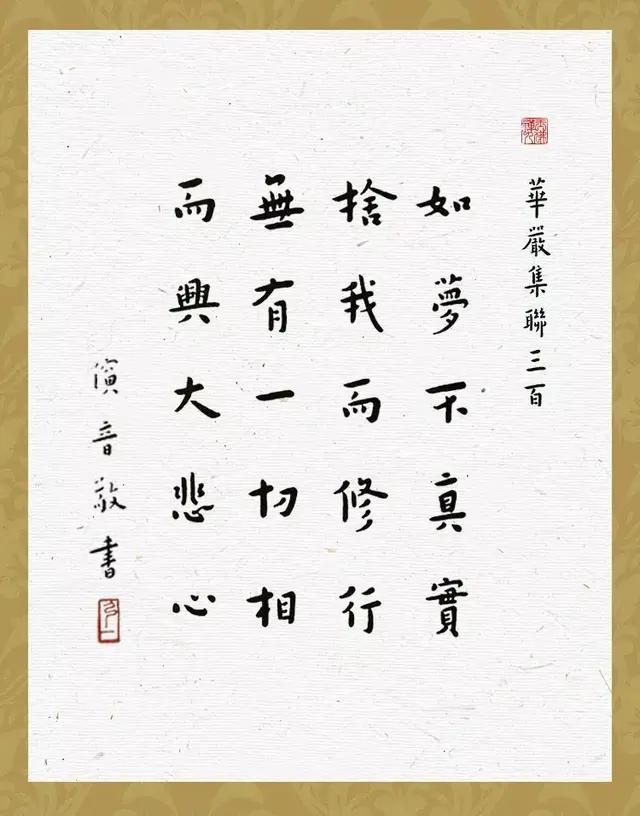 華嚴集聯三百
如夢不真實
捨我而修行
無有一切相
而興大悲心
演音敬書
弘一